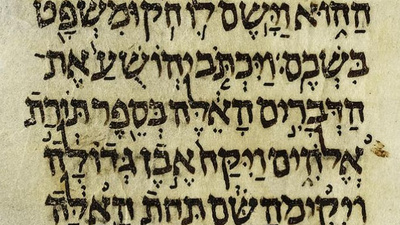 הַהוּא וַיָּשֶׂם לוֹ חֹק וּמִשְׁפָּט
בִּשְׁכֶם׃ וַיִּכְתֹּב יְהוֹשֻׁעַ אֶת
הַדְּבָרִים הָאֵלֶּה בְּסֵפֶר תּוֹרַת
אֱלֹהִים וַיִּקַּח אֶבֶן גְּדוֹלָה
וַיְקִימֶהָ שָּׁם תַּחַת הָאַלָּה